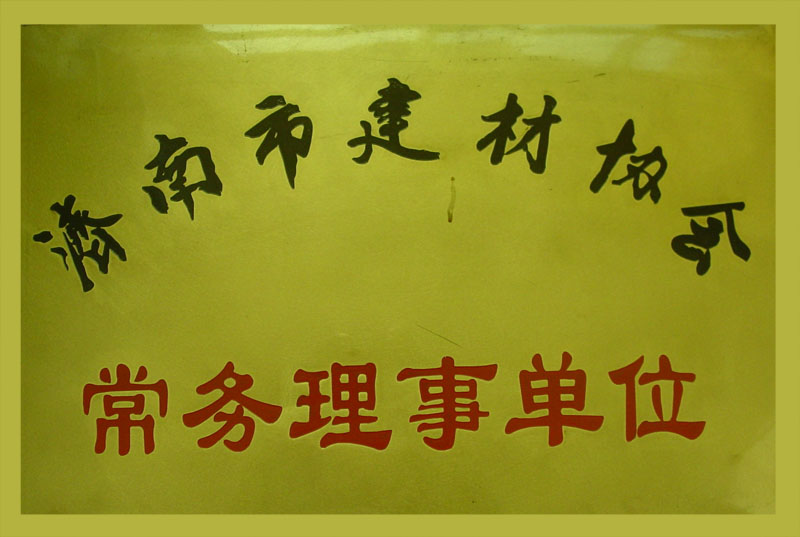 济南市建材协会
常务理事单位